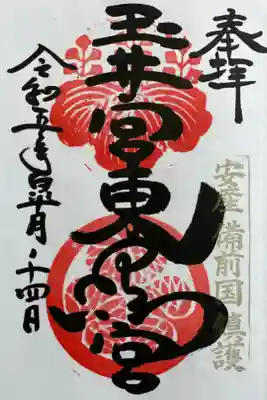 奉拝
安産 備前国 鎮護
玉井宮東照宮
令和五年皐月十四日